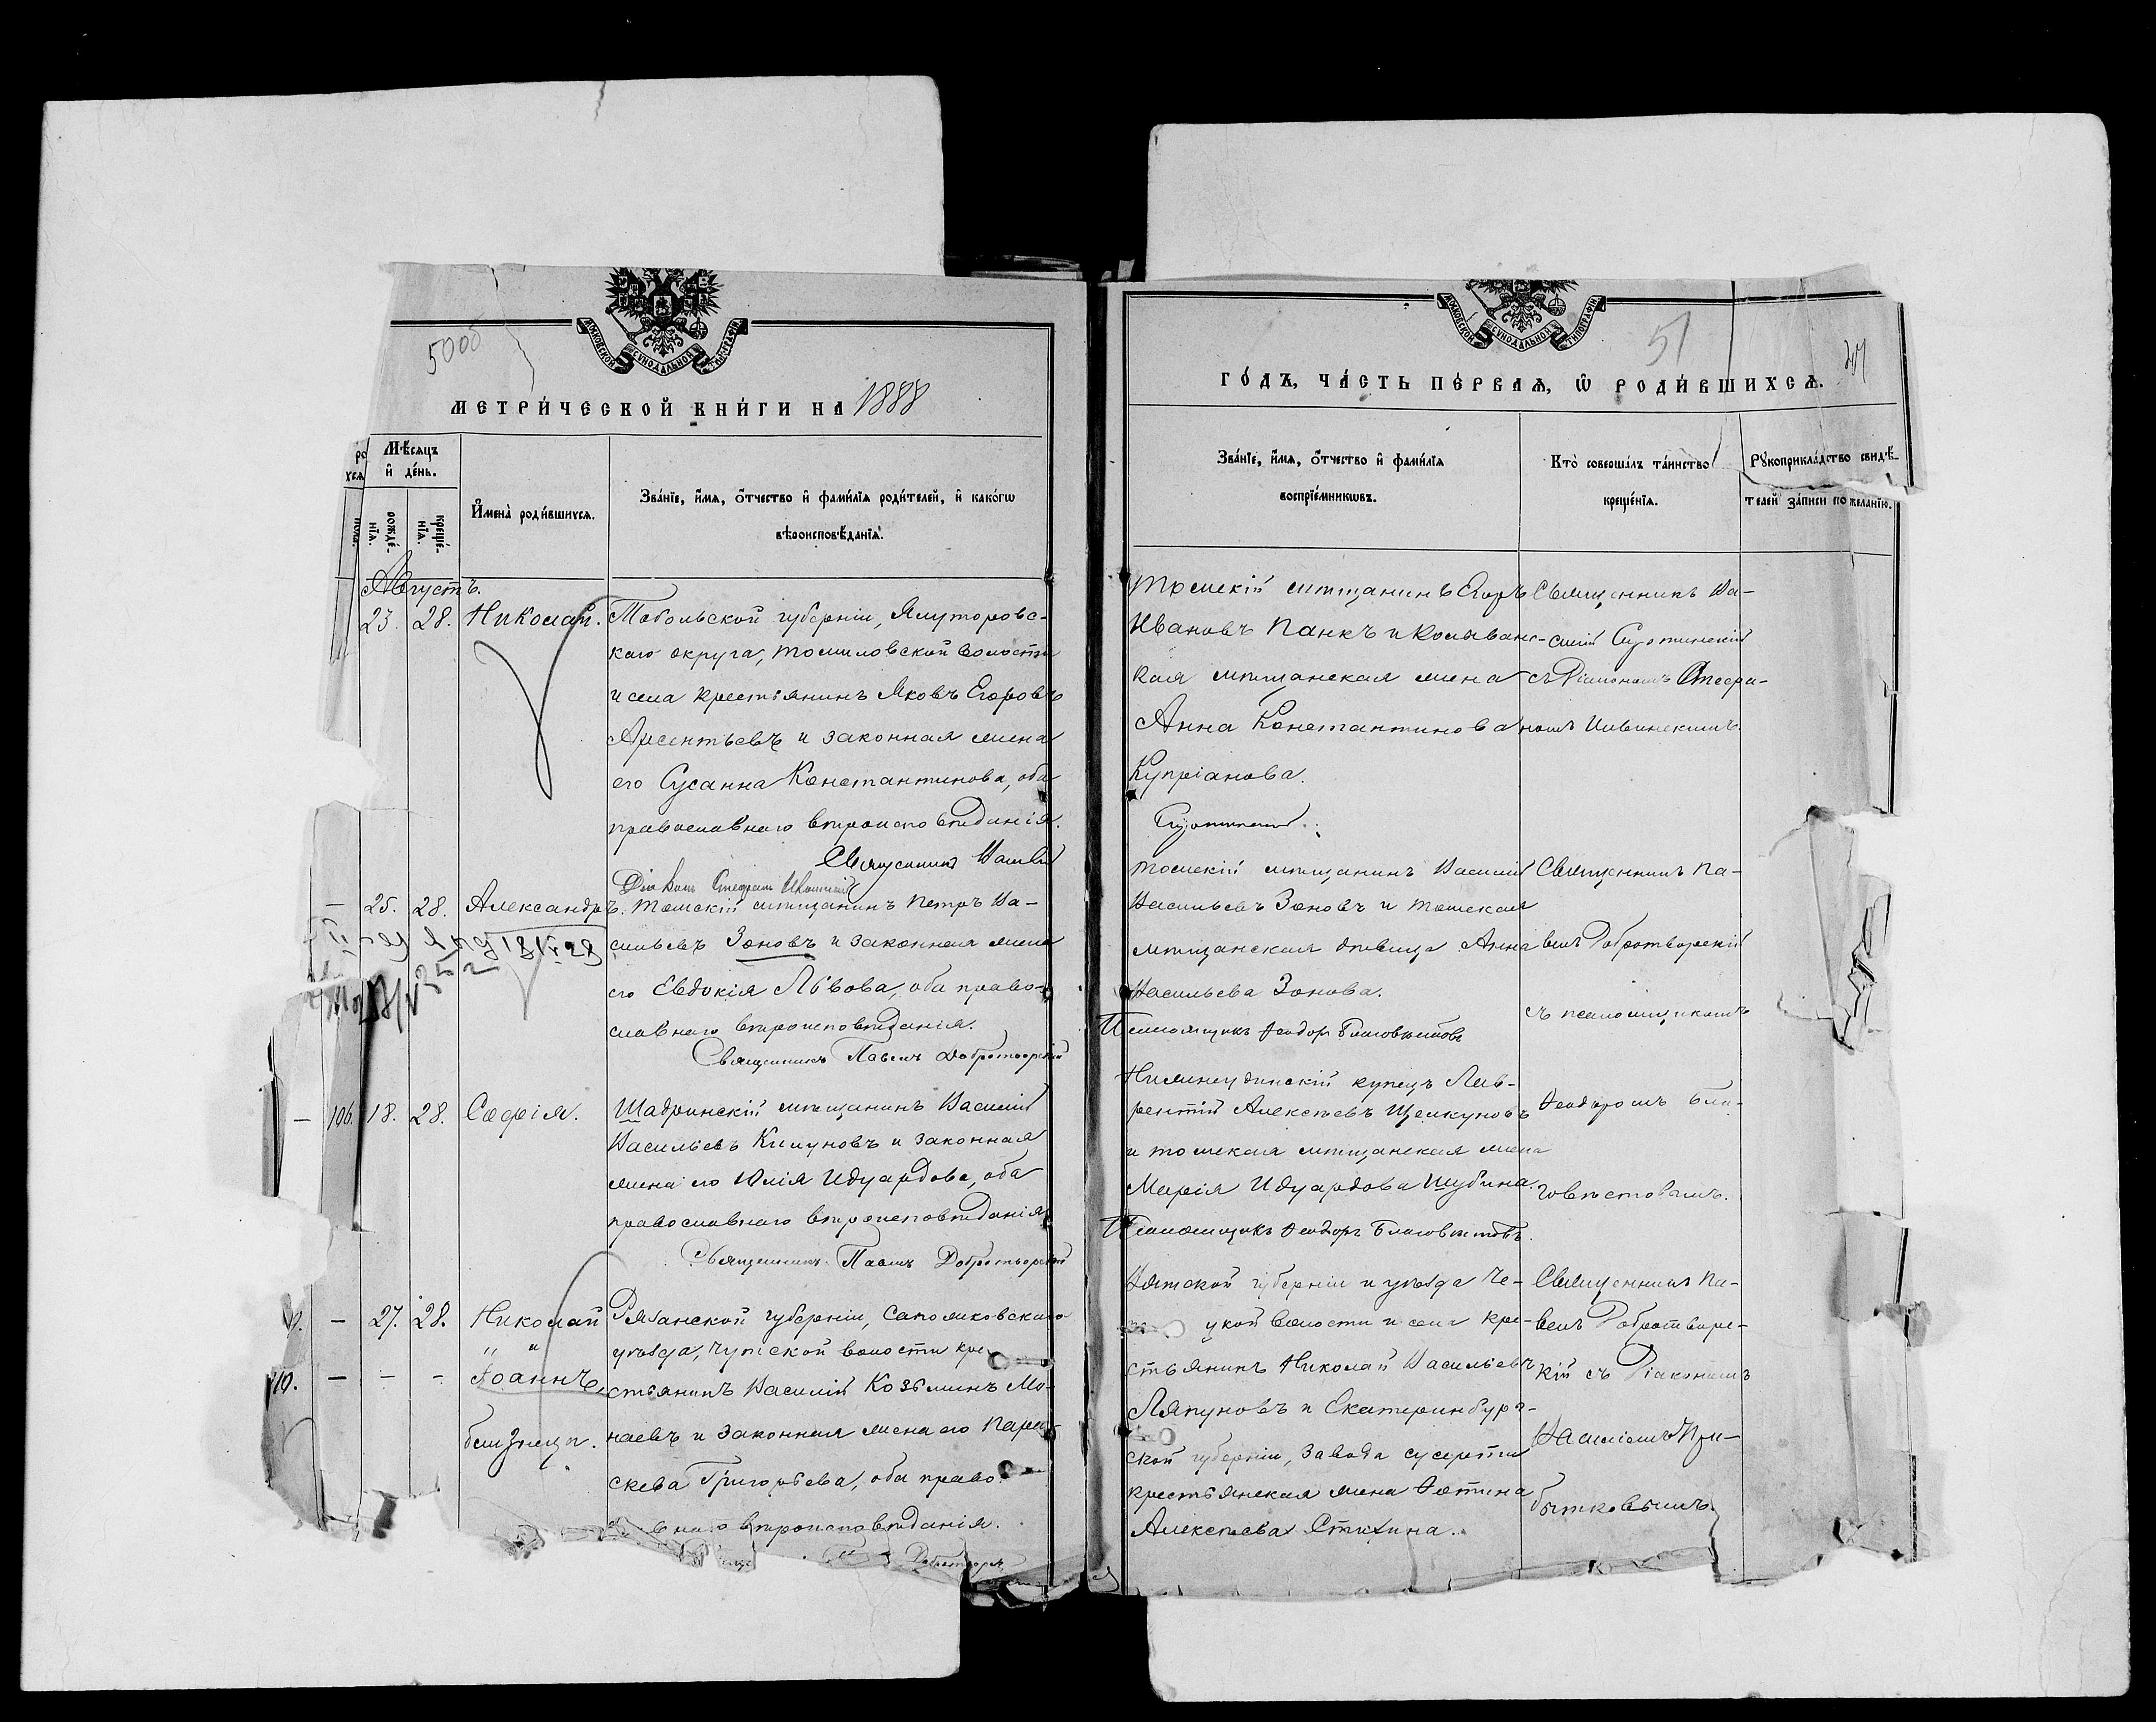 МОСКОВСКОЙ СУНОДАЛЬНОЙ ТИПОГРАФІИ
5005
МЕТРИ́ЧЕСКОЙ КНИ́ГИ НА 1888
Мѣсяцъ и҆ де́нь.
рожде́нїѧ.
креще́нїѧ.
И҆мена̀ роди́вшихсѧ.
Зва́нїе, и҆́мѧ, ѻ҆́тчество и҆ фами́лїѧ роди́телей, и҆ како́гѡ
вѣроисповѣ́данїѧ.
Августъ.
23. 28. Николай.
Тобольской губерніи, Ялуторовс-
каго округа, Томиловской волости
и села крестьянинъ Яковъ Егоровъ
Арсентьевъ и законная жена
его Сусанна Константинова, оба
православнаго вѣроисповѣданія.
Священникъ Василій
Діаконъ Стефанъ
— 25. 28. Александръ.
Томскій мѣщанинъ Петръ Ва-
сильевъ Зоновъ и законная жена
его Евдокія Львова, оба право-
славнаго вѣроисповѣданія.
Священникъ Павелъ Добротворскій
— 106. 18. 28. Софія.
Шадринскій мѣщанинъ Василій
Васильевъ Кишуновъ и законная
жена его Юлія Идуардова, оба
православнаго вѣроисповѣданія
Священникъ Павелъ Добротворскій
— 27. 28. Николай
„ и
10. — — — Іоаннъ,
близнецы.
Рязанской губерніи, Сапожковскаго
уѣзда, волости кре
стьянинъ Василій Козьминъ Мо-
наевъ и законная жена его Пара-
скева Григорьева, оба право
наго вѣроисповѣданія.
Добротворск
МОСКОВСКОЙ СУНОДАЛЬНОЙ ТИПОГРАФІИ
51
ГО́ДЪ, ЧА́СТЬ ПЕ́РВАѦ, Ѡ҆ РОДИ́ВШИХСѦ.
Зва́нїе, и҆́мѧ, ѻ҆́тчество и҆ фами́лїѧ
воспрїе́мникѡвъ.
Кто̀ соверша́лъ та́инство
креще́нїѧ.
Рꙋкоприкла́дство свидѣ́-
телей за́писи по жела́нїю.
Томскій мѣщанинъ Егоръ
Ивановъ Панкъ и Колыванс-
кая мѣщанская жена
Анна Константинова
Купріанова.
Сиротинскій.
Священникъ Ва-
силій Сиротинскій
съ Діакономъ Стефа-
номъ Ивинскимъ.
Томскій мѣщанинъ Василій
Васильевъ Зоновъ и Томская
мѣщанская дѣвица Анна
Васильева Зонова.
Псаломщикъ Ѳеодоръ Благовѣстовъ
Священникъ Па-
велъ Добротворскій
съ псаломщикомъ
Нижнеудинскій купецъ Лав-
рентій Алексѣевъ Щелкуновъ
и томская мѣщанская жена
Марія Идуардова Шубина.
Псаломщикъ Ѳеодоръ Благовѣстовъ.
Ѳеодоромъ Бла-
говѣстовымъ.
Вятской губерніи и уѣзда Че-
цкой волости и села кре-
стьянинъ Николай Васильевъ
Ляпуновъ и Екатеринбург-
ской губерніи, завода Сысерти
крестьянская жена Фотина
Алексѣева Стихина.
Священникъ Па-
велъ Добротворс-
кій съ Діакономъ
Василіемъ При-
бытковымъ.